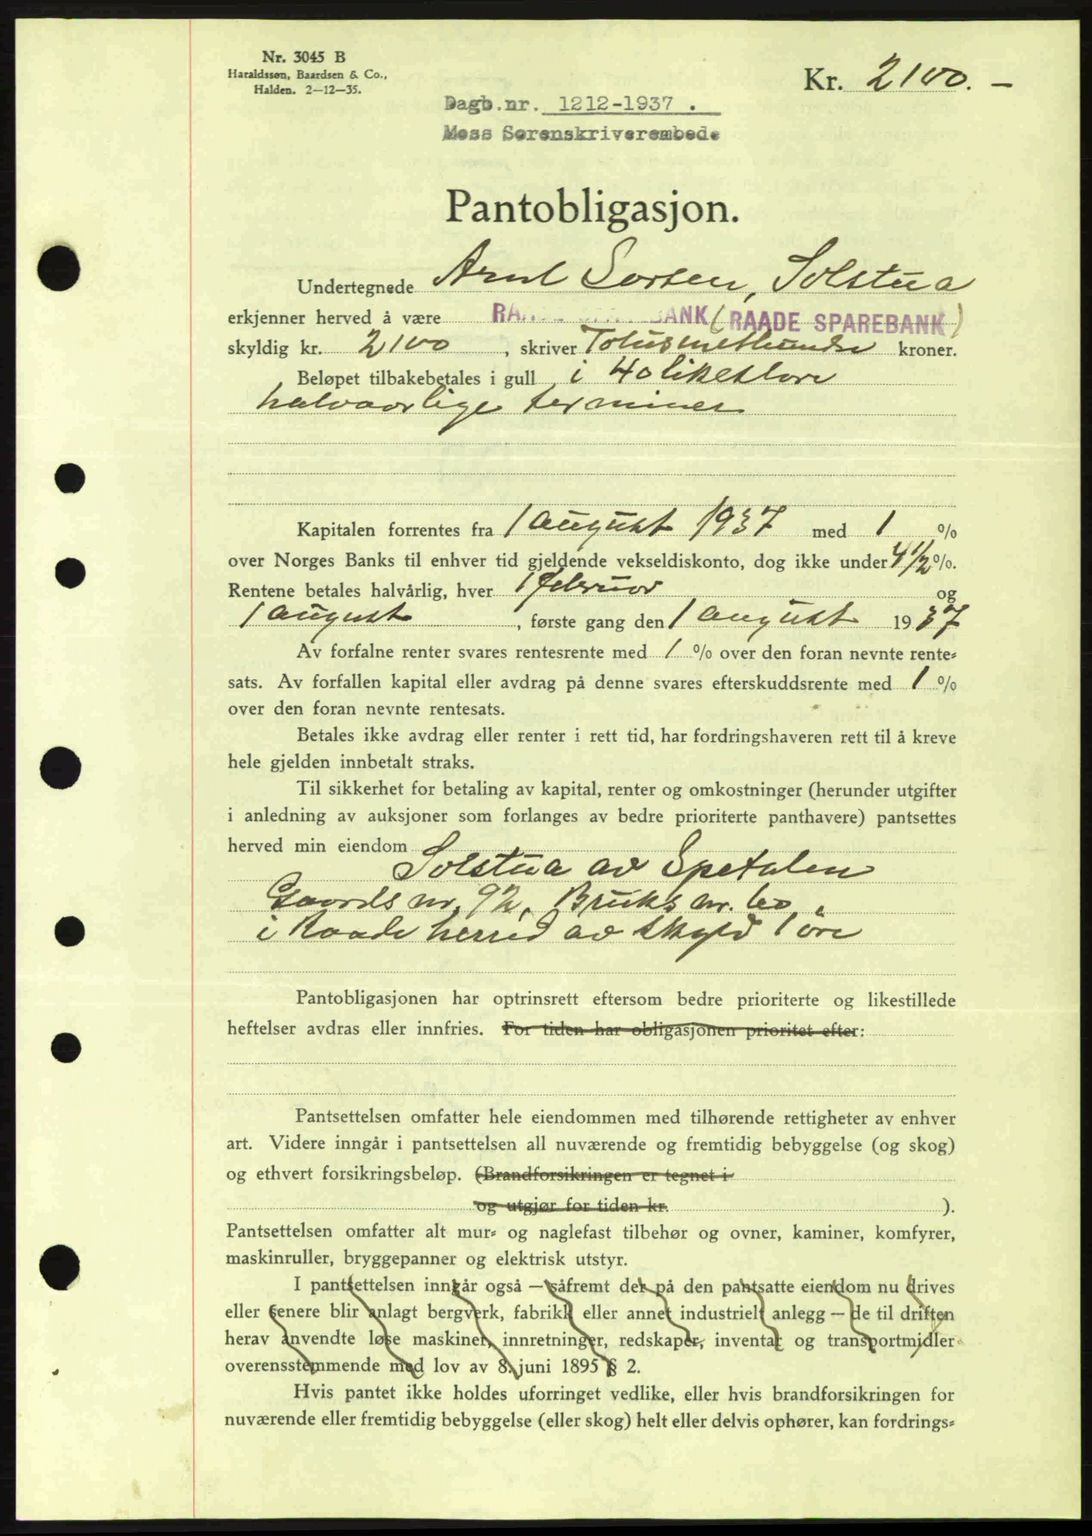 Nr. 3045 B
Haraldssøn, Baardsen & Co.,
Halden. 2—12—35.
Kr. 2100. —
Dagb.nr. 1212-1937 .
Moss Sorenskriverembede
Pantobligasjon.
Undertegnede Arnt Solstua
erkjenner herved å være (RAADE SPAREBANK)
skyldig kr. 2100 , skriver Totusenetthundre kroner.
Beløpet tilbakebetales i gull i 40 likestore
halvaarlige terminer
Kapitalen forrentes fra 1 august 1937 med 1 %
over Norges Banks til enhver tid gjeldende vekseldiskonto, dog ikke under 4 1/2 %.
Rentene betales halvårlig, hver 1 februar og
1 august , første gang den 1 august 1937
Av forfalne renter svares rentesrente med 1 % over den foran nevnte rente-
sats. Av forfallen kapital eller avdrag på denne svares efterskuddsrente med 1 %
over den foran nevnte rentesats.
Betales ikke avdrag eller renter i rett tid, har fordringshaveren rett til å kreve
hele gjelden innbetalt straks.
Til sikkerhet for betaling av kapital, renter og omkostninger (herunder utgifter
i anledning av auksjoner som forlanges av bedre prioriterte panthavere) pantsettes
herved min eiendom
Solstua av Spetalen
Gaards nr. 92, Bruks nr. 60,
i Raade herred av skyld 1 øre
Pantobligasjonen har optrinsrett eftersom bedre prioriterte og likestillede
heftelser avdras eller innfries. For tiden har obligasjonen prioritet efter:
Pantsettelsen omfatter hele eiendommen med tilhørende rettigheter av enhver
art. Videre inngår i pantsettelsen all nuværende og fremtidig bebyggelse (og skog)
og ethvert forsikringsbeløp. (Brandforsikringen er tegnet i
og utgjør for tiden kr. ).
Pantsettelsen omfatter alt mur- og naglefast tilbehør og ovner, kaminer, komfyrer,
maskinruller, bryggepanner og elektrisk utstyr.
I pantsettelsen inngår også — såfremt der på den pantsatte eiendom nu drives
eller senere blir anlagt bergverk, fabrikk eller annet industrielt anlegg — de til driften
herav anvendte løse maskiner, innretninger, redskaper, inventar og transportmidler
overensstemmende med lov av 8. juni 1895 § 2.
Hvis pantet ikke holdes uforringet vedlike, eller hvis brandforsikringen for
nuværende eller fremtidig bebyggelse (eller skog) helt eller delvis ophører, kan fordrings-